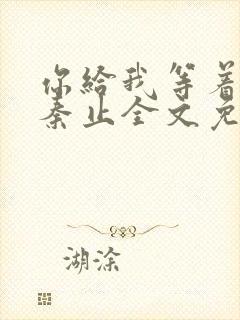 你給我等着
秦止全文免
湖涂